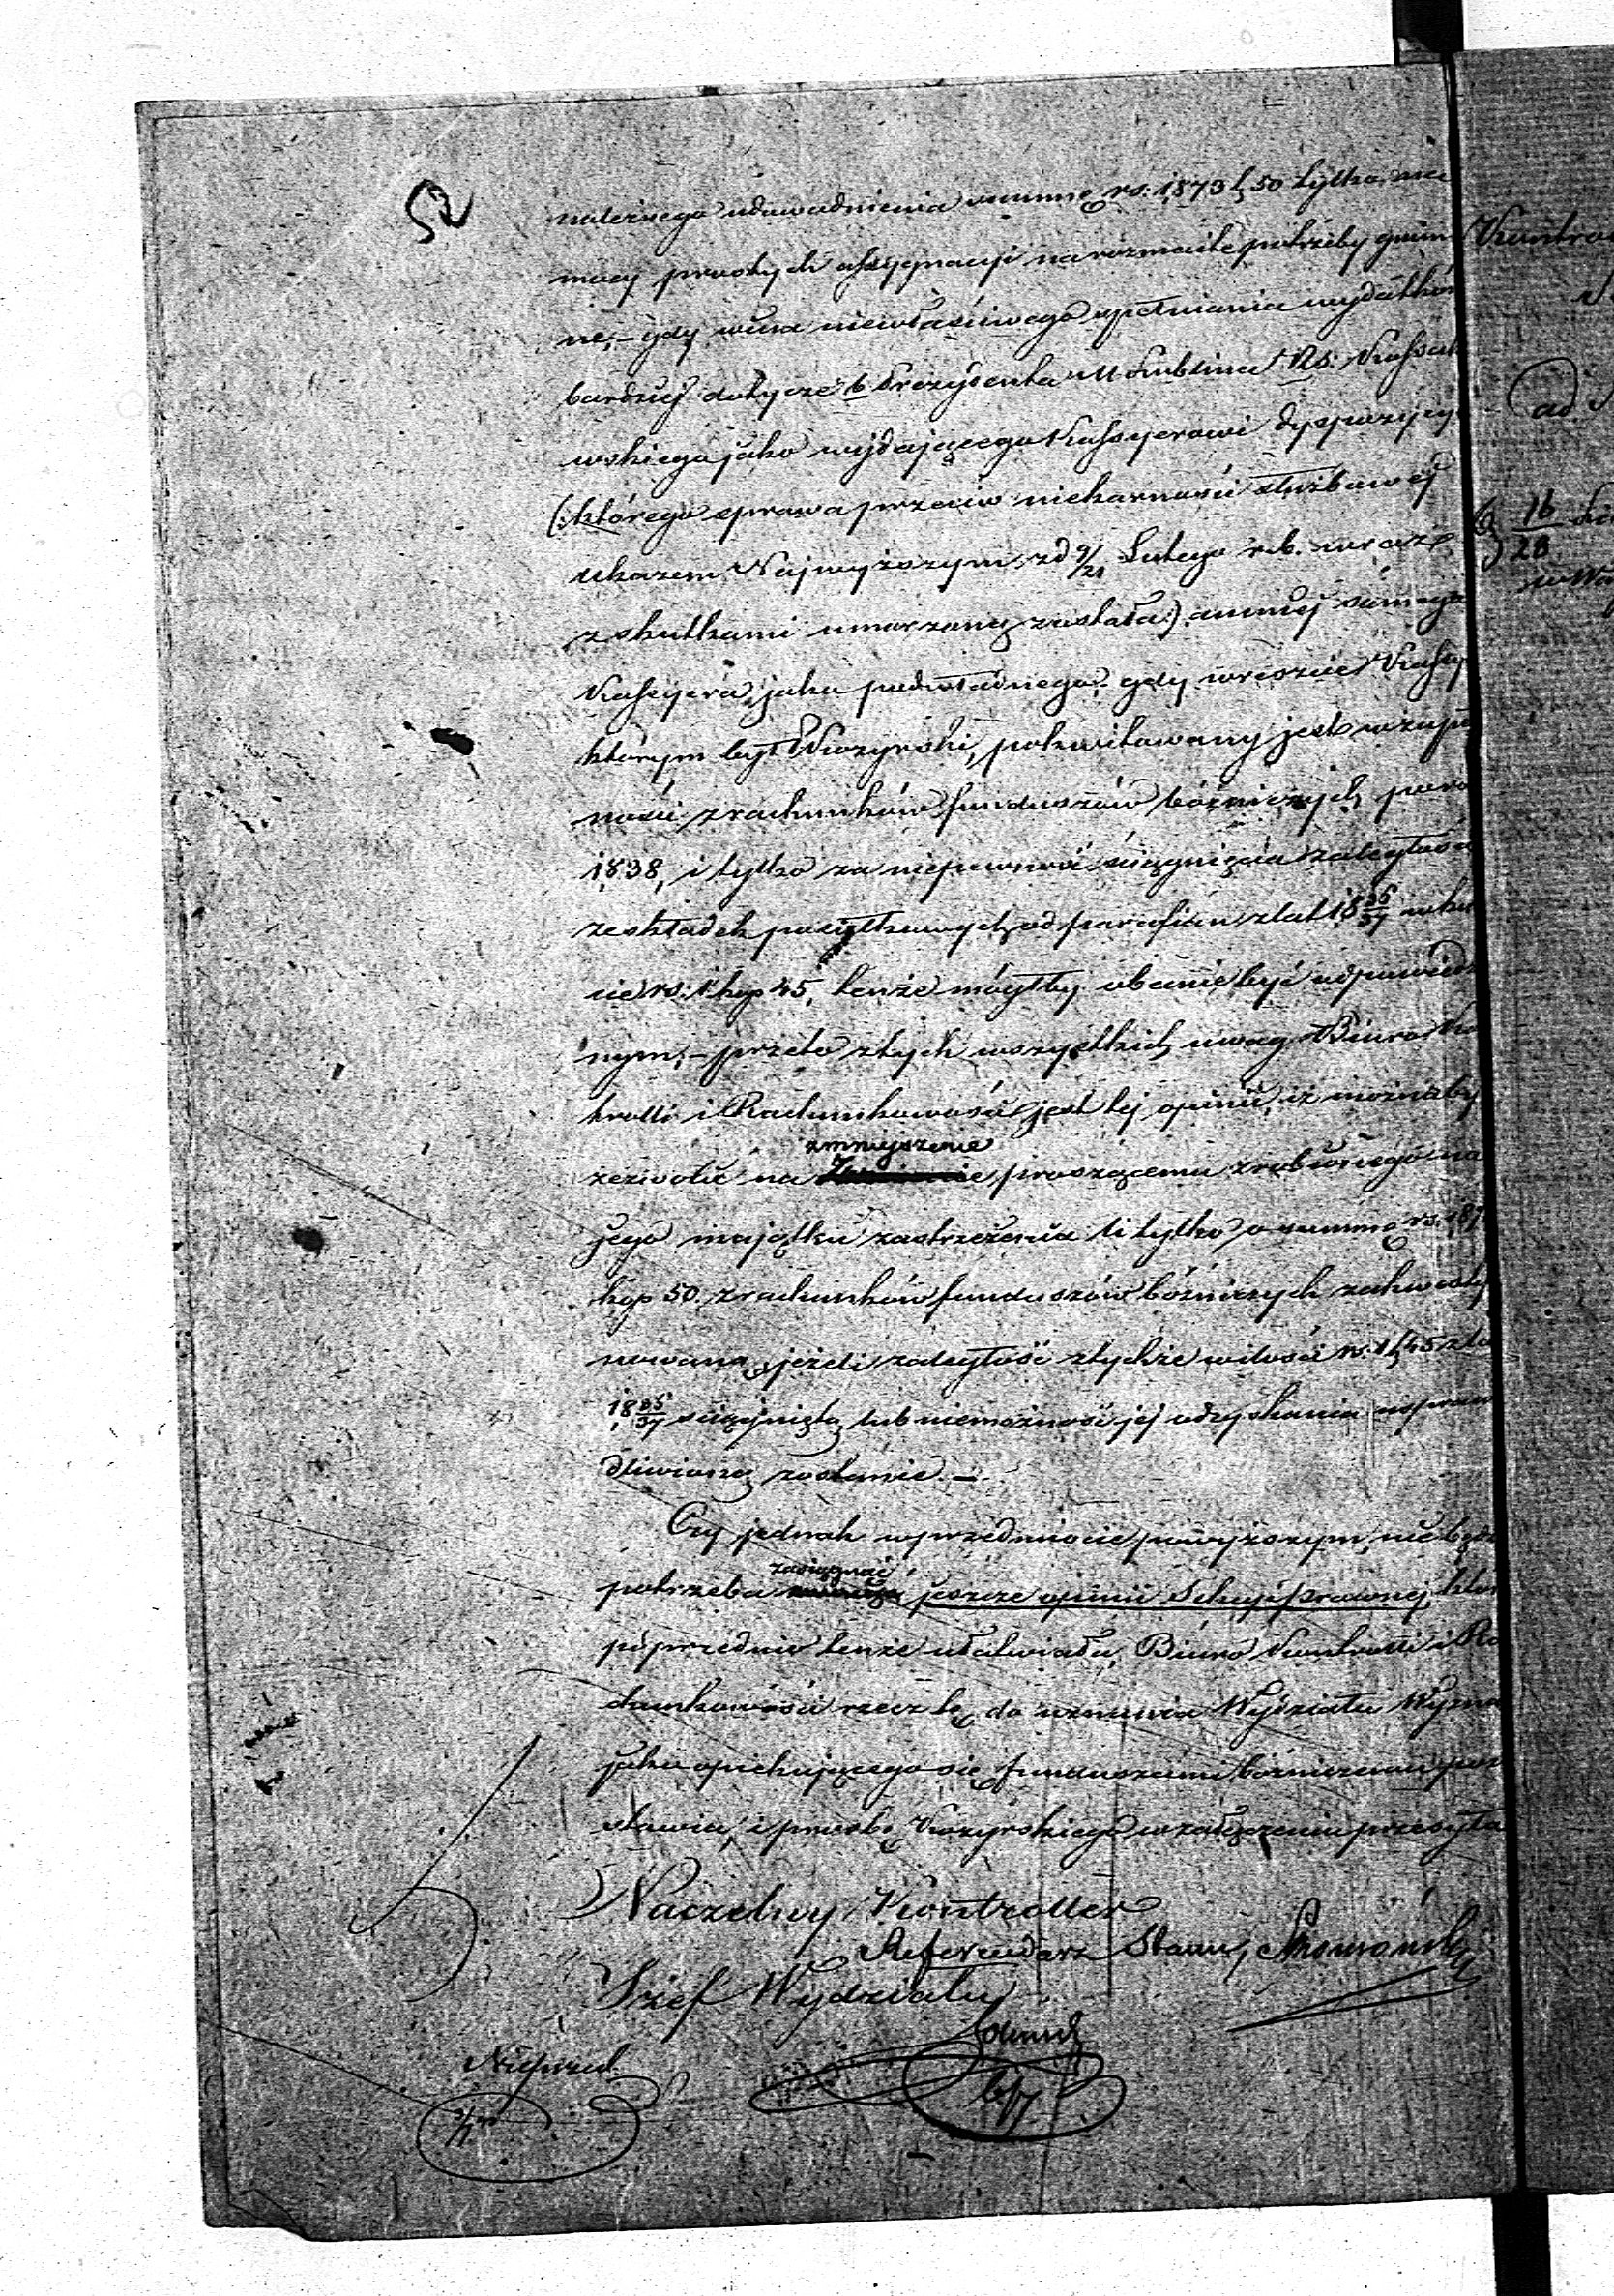 należnego udowodnienia summę rs: 1,873 k 50 tylko na
mocy prostych assygnacyi na rozmaite potrzeby gmin
ne, – gdy wina niewłaściwego spełniania wydatków
bardziej dotycze b Prezydenta M Lublina
wskiego jako wydającego Kassyerowi dyspozycye
(:którego sprawa przeciw niekarności służbowej
Ukazem Najwyższym z d 9/21 Lutego r.b. wraz
z skutkami umorzoną została:) a mniej samego
Kassyera, jako podwładnego, gdy wreszcie Kassy
którym był Kozyrski, pokwitowany jest w zupeł
ności z rachunków funduszów bóżniczych po r
1838, i tylko za niepewność ściągnięcia zaległości
ze składek posiłkowych od parafian z lat 18 36/37 w kw
cie rs: 1 kop 45, tenże mógłby obecnie być odpowiedzial
nym, – przeto z tych wszystkich uwag Biuro Kon
trolli i Rachunkowości jest tej opinii, iż możnaby
zezwolić na zmniejszenie proszącemu zrobionego na
jego majątku zastrzeżenia li tylko o summę rs. 187
kop 50. z rachunków funduszów bóżniczych zakwesty
nowaną, jeżeli zaległość z tychże w ilości rs. 1 k 45 z lat
18 36/37 ściągniętą, lub niemożność jej odzyskania uspraw
dliwioną zostanie. –
Czy jednak w przedmiocie powyższym, nie będzie
potrzeba zasiągnąć jeszcze opinii Sekcyi Prawnej, któr
poprzednio tenże ułatwiała, Biuro Kontrolli i Ra
chunkowości rzecz tę do uznania Wydziału Wyzna
jako opiekującego się funduszami bóżniczemi pozo
stawia, i prośbę Kozyrskiego w załączeniu przesyła
Naczelny Kontroller
Referendarz Stanu,
Szef Wydziału
Kontro
ad
16
28